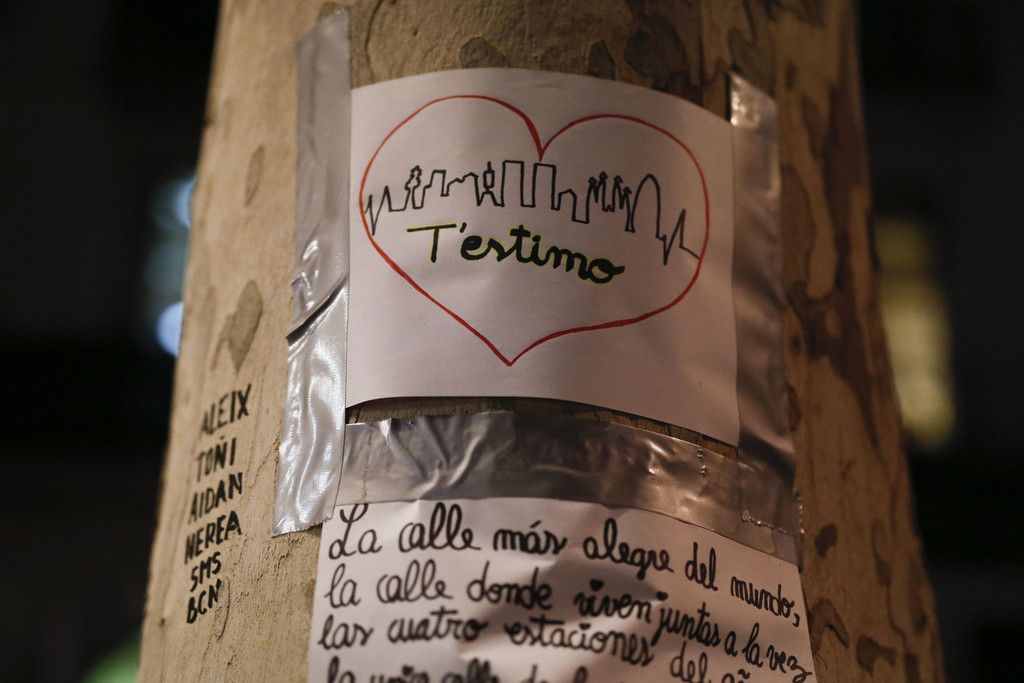 T'estimo
ALEIX
TOÑI
AIDAN
NEREA
SMS
BCN
La calle más alegre del mundo,
la calle donde viven juntas a la vez
las cuatro estaciones del añ
la única calle de la